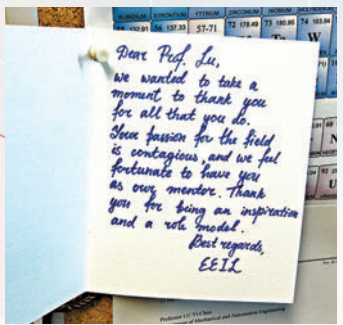 RUBIDIUM STRONTIUM YTTRIUM ZIRCONIUM
56 137.33 57-71 72 178.49 73 180.95 74 183.84
W
Dear Prof. Lu,
we wanted to take a
moment to thank you
for all that you do.
Your passion for the field
is contagious, and we feel
fortunate to have you
as our mentor. Thank
you for being an inspiration
and a role model.
Best regards,
EEIL
Professor LU Yi-Chun
of Mechanical and Automation Engineering